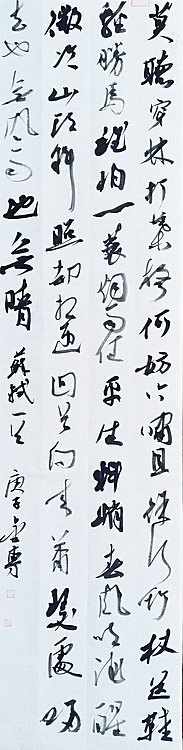 莫聽穿林打葉聲何妨吟嘯且徐行竹杖芒鞋
輕勝馬誰怕一蓑烟雨任平生料峭春風吹酒醒
微冷山頭斜照却相迎回首向來蕭瑟處歸
去也無風雨也無晴 蘇軾一首 庚子